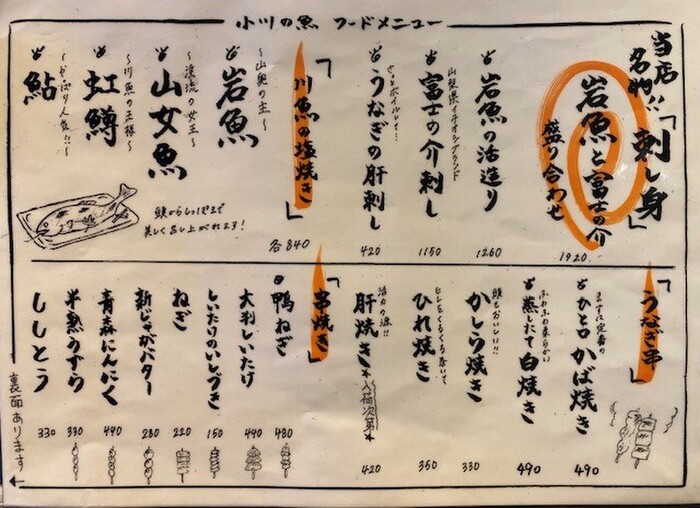 小川の魚 フードメニュー
当店名物!!「刺し身」
岩魚と富士の介
盛り合わせ
1920
岩魚の活造り
1260
山梨県イチオシブランド
富士の介刺し
1150
さっとボイルして…
うなぎの肝刺し
420
「川魚の塩焼き」
〜山奥の主〜
岩魚
〜渓流の女王〜
山女魚
〜川魚の王様〜
虹鱒
〜やっぱり人気!!〜
鮎
頭からしっぽまで
美しく召し上がれます!
各840
「うなぎ串」
まずは定番の
ひと口かば焼き
490
ふわふわ柔らかい
蒸したて白焼き
490
頭もおいしい!!
かしら焼き
330
ヒレをくるくる巻いて
ひれ焼き
350
活力の源!!
肝焼き
*入荷次第*
420
「串焼き」
鴨ねぎ
480
大判しいたけ
440
しいたけのいしづき
150
ねぎ
220
新じゃがバター
280
青森にんにく
490
半熟うずら
330
ししとう
330
裏面あります